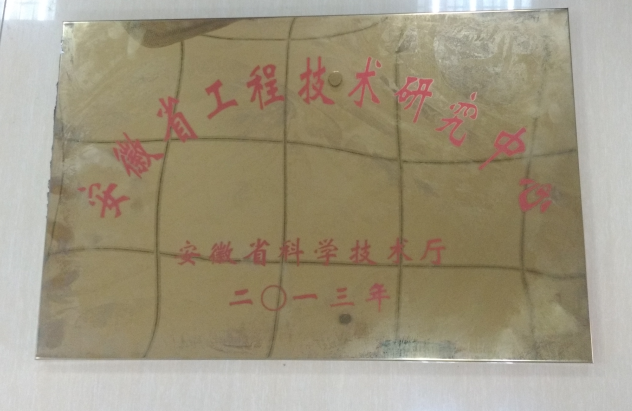 安徽省工程技术研究中心
安徽省科学技术厅
二〇一三年